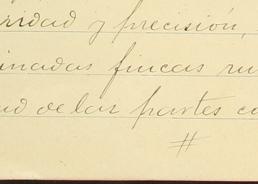 ridad y precisión,
inadas fincas ru
ud de las partes co
#